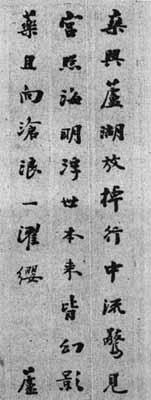 乘興蘆湖放棹行中流驚見
宮照海明浮世本來皆幻影
藥且向滄浪一濯纓 蘆